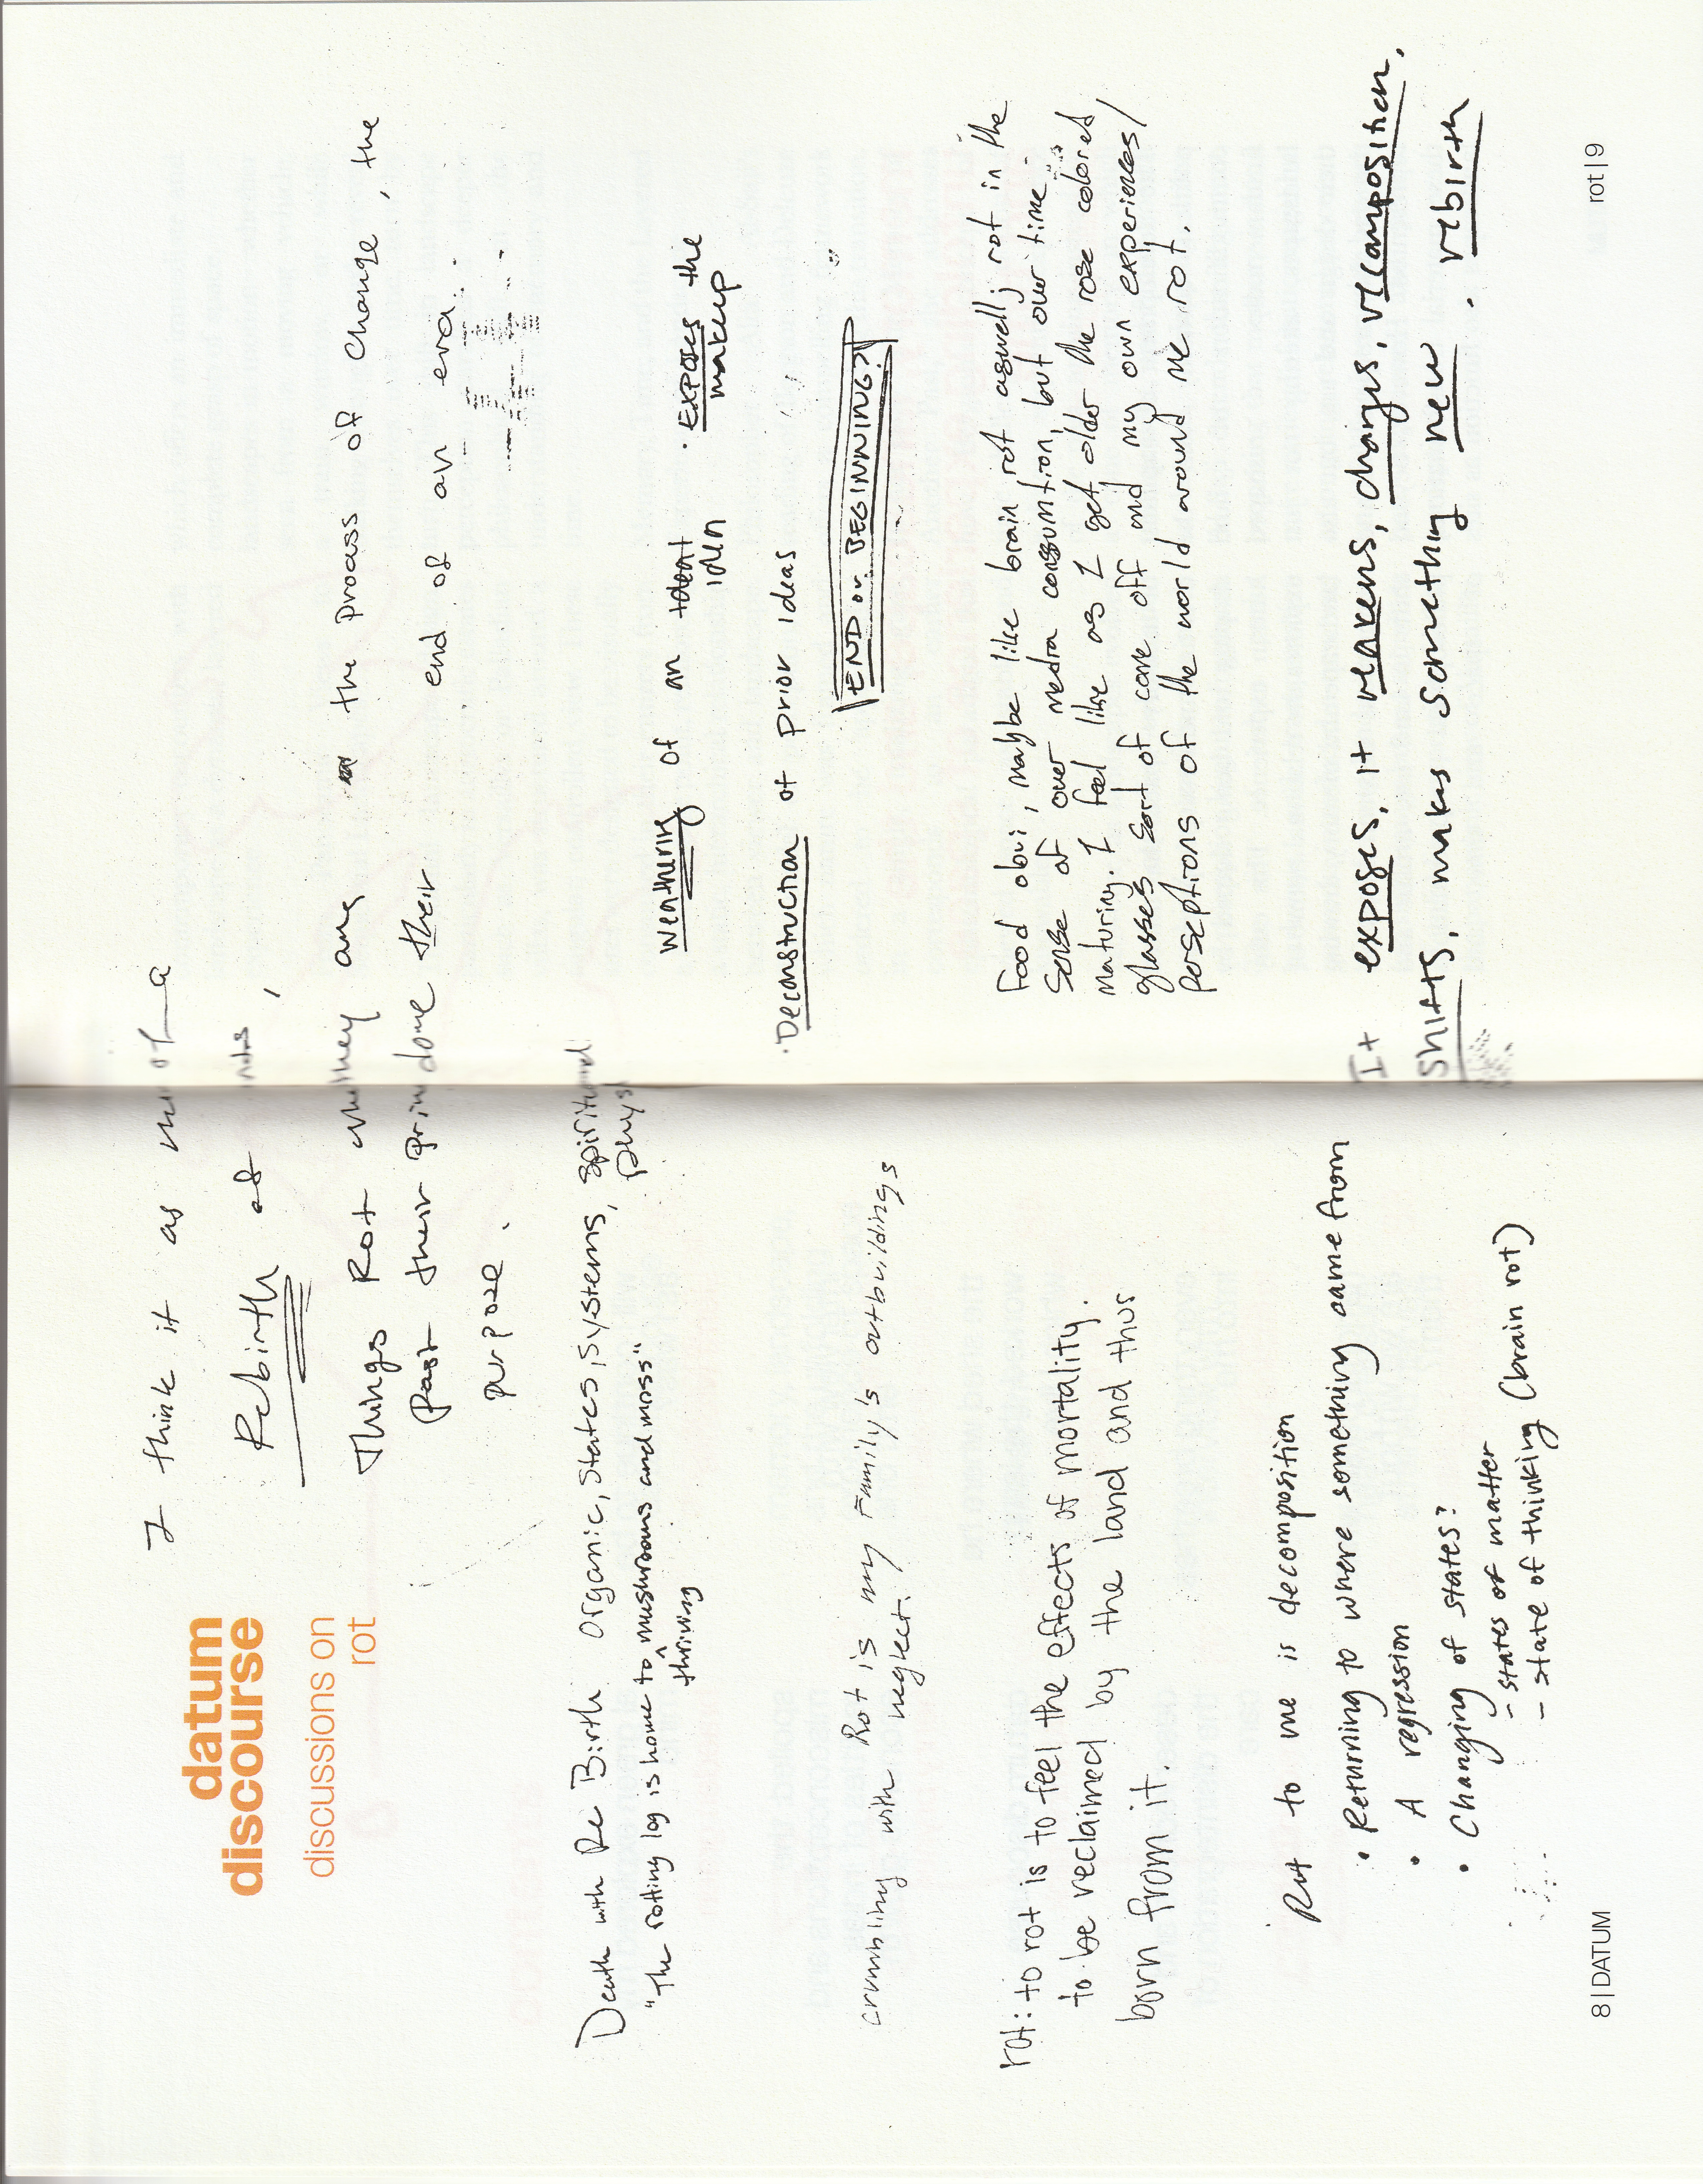 datum
discourse
discussions on
rot
I think it as more of a
Rebirth of
Things Rot when they are
past their prime done their
purpose.
the process of change, the
end of an era.
Death with Re Birth organic, states, systems, spiritual
phys
"The rotting log is home to mushrooms and moss"
thriving
weathering of an ideat
iden
• EXPOSES the
makeup
• Deconstruction of prior ideas
END or BEGINNING?
crumbling with Rot is my Family's outbuildings
neglect.
rot: to rot is to feel the effects of mortality.
to be reclaimed by the land and thus
born from it.
Food obvi, maybe like brain rot aswell; not in the
sense of over media consumtion, but over time
maturing. I feel like as I get older the rose colored
glasses sort of come off and my own experiences/
perseptions of the world around me rot.
Rot to me is decomposition
• Returning to where something came from
• A regression
• Changing of states?
- states of matter
- state of thinking (brain rot)
It exposes, it weakens, changes, recomposition,
shifts, makes something new. rebirth
8 | DATUM
rot | 9